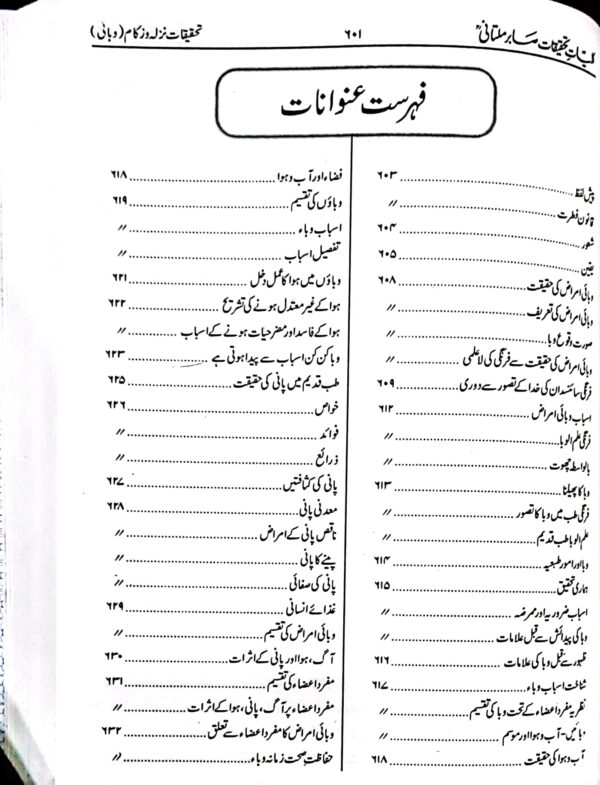 کلیات تحقیقات صابر ملتانیؒ ۶۰۱ تحقیقات نزلہ و زکام (وبائی)
فہرست عنوانات
پیش لفظ ۶۰۳
قانون فطرت 〃
شعور ۶۰۴
یقین ۶۰۵
وبائی امراض کی حقیقت ۶۰۸
وبائی امراض کی تعریف 〃
صورت وقوع وبا 〃
وبائی امراض کی حقیقت سے فرنگی کی لاعلمی 〃
فرنگی سائنسدان کی خدا کے تصور سے دوری ۶۰۹
اسباب وبائی امراض ۶۱۲
فرنگی علم الوبا 〃
بالواسطہ چھوت 〃
وبا کا پھیلنا ۶۱۳
فرنگی طب میں وبا کا تصور 〃
علم الوبا طب قدیم 〃
وبا اور امور طبعیہ ۶۱۴
ہماری تحقیق ۶۱۵
اسباب ضروریہ اور ممرضہ 〃
وبا کی پیدائش سے قبل علامات 〃
ظہور سے قبل وبا کی علامات ۶۱۶
شناخت اسباب وباء ۶۱۷
نظریہ مفرد اعضاء کے تحت وبا کی تقسیم 〃
وبائیں - آب و ہوا اور موسم 〃
آب و ہوا کی حقیقت ۶۱۸
فضاء اور آب و ہوا ۶۱۸
وباؤں کی تقسیم ۶۱۹
اسباب وباء 〃
تفصیل اسباب 〃
وباؤں میں ہوا کا عمل دخل ۶۲۱
ہوا کے غیر معتدل ہونے کی تشریح ۶۲۲
ہوا کے فاسد اور مضر حیات ہونے کے اسباب 〃
وبا کن کن اسباب سے پیدا ہوتی ہے ۶۲۳
طب قدیم میں پانی کی حقیقت ۶۲۵
خواص ۶۲۶
فوائد 〃
ذرائع 〃
پانی کی کثافتیں ۶۲۷
معدنی پانی ۶۲۸
ناقص پانی کے امراض 〃
پینے کا پانی 〃
پانی کی صفائی 〃
غذائے انسانی ۶۲۹
وبائی امراض کی تقسیم 〃
آگ، ہوا اور پانی کے اثرات ۶۳۰
مفرد اعضاء کی تقسیم ۶۳۱
مفرد اعضاء پر آگ، پانی، ہوا کے اثرات 〃
وبائی امراض کا مفرد اعضاء سے تعلق ۶۳۲
حفاظت صحت زمانہ وباء 〃